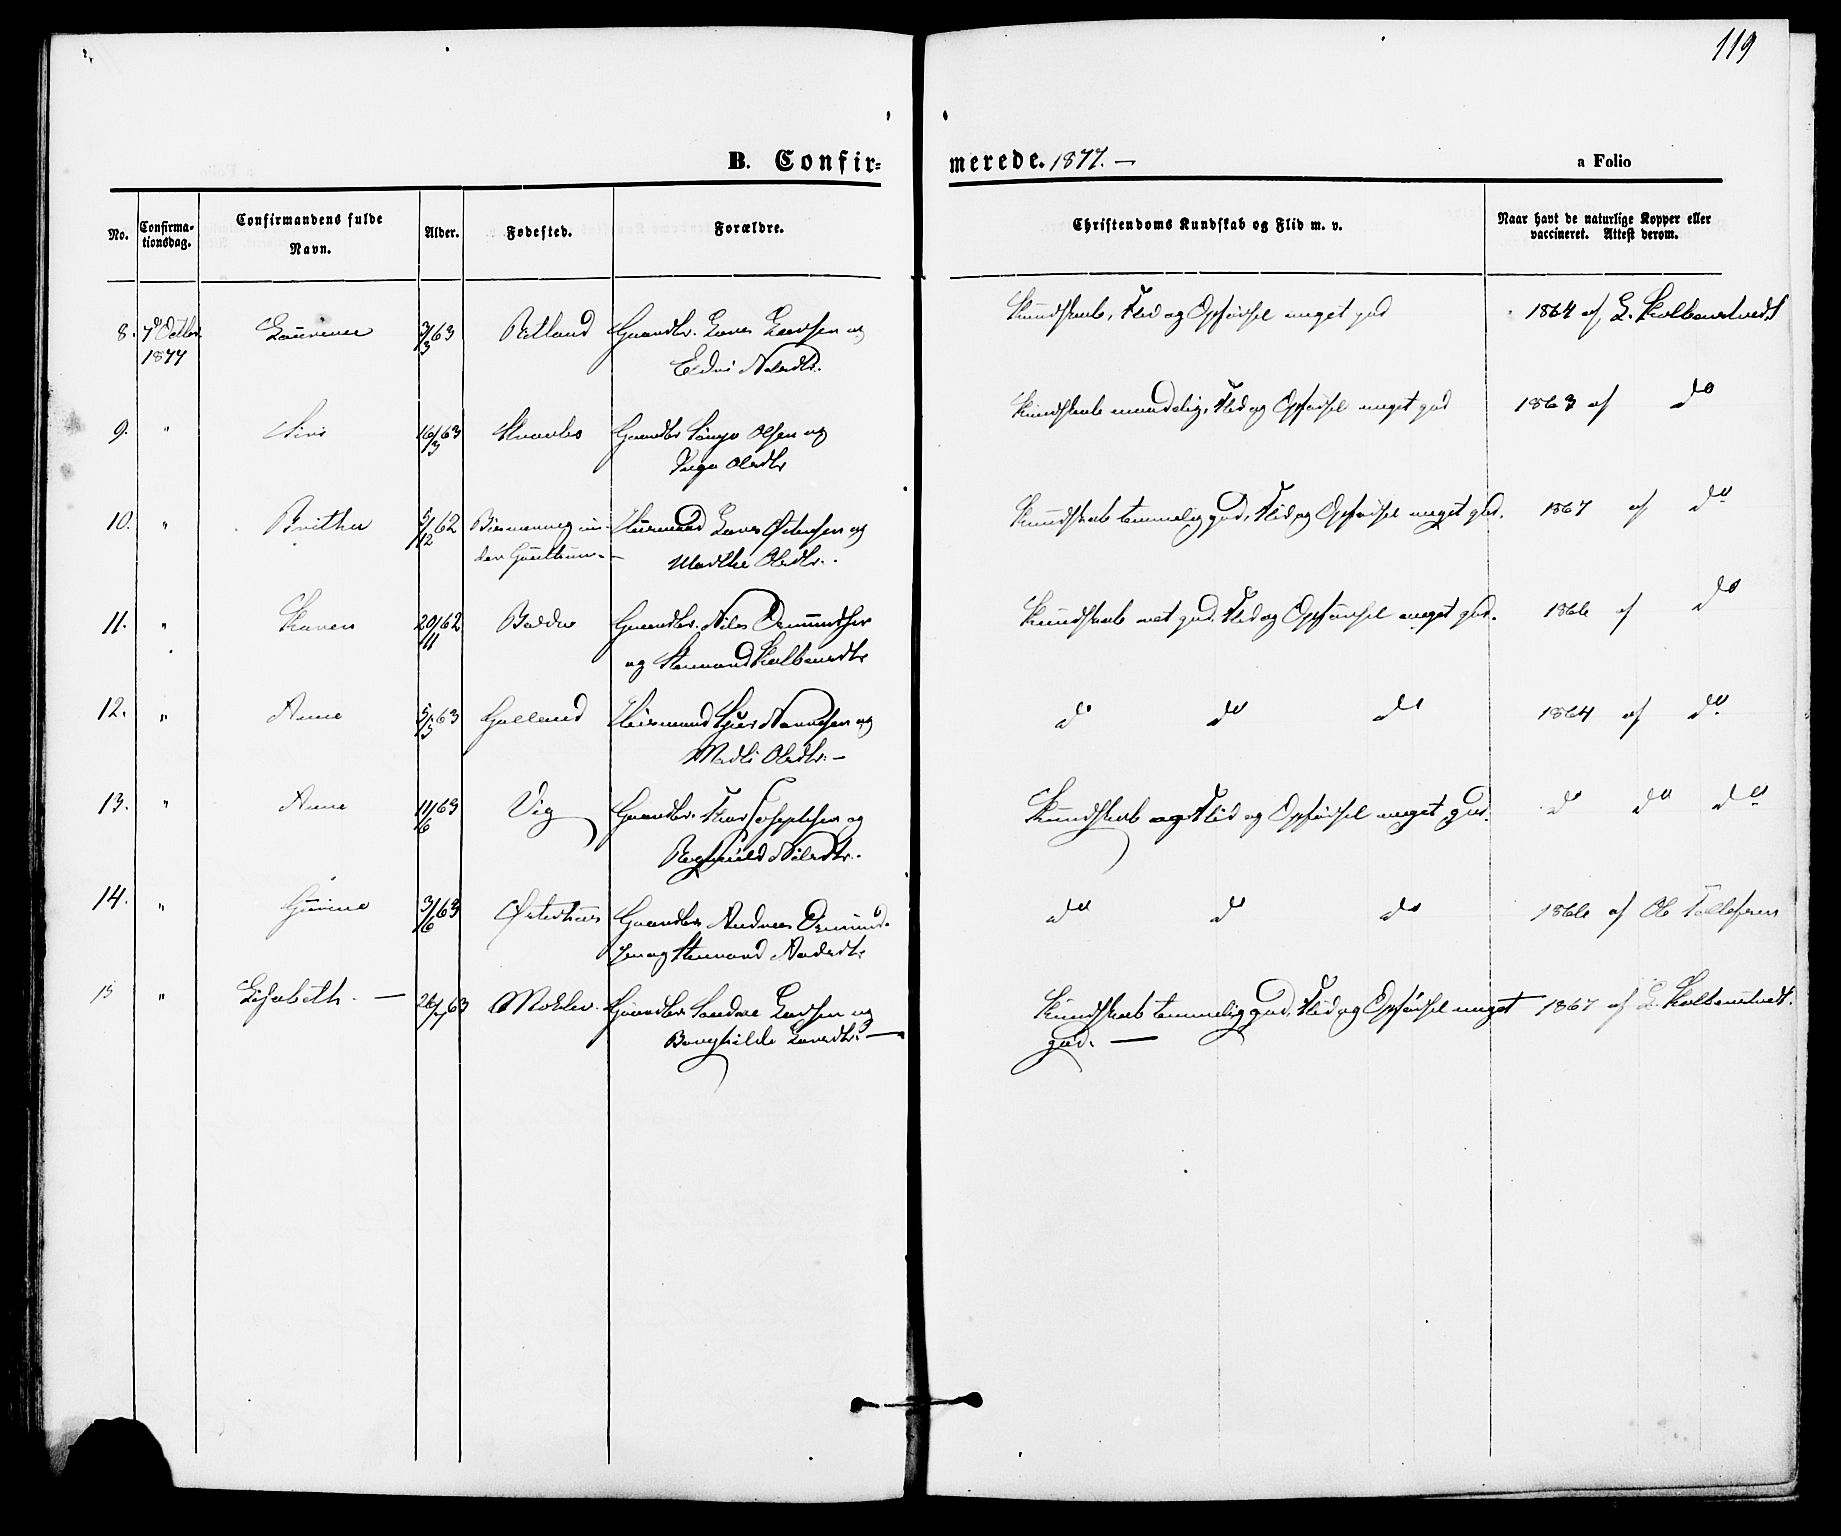 119
B. Confir-
merede. 1877. —
a Folio
No.
Confirma-
tionsdag.
Confirmandens fulde
Navn.
Alder.
Fødested.
Forældre.
Christendoms Kundskab og Flid m. v.
Naar havt de naturlige Kopper eller
vaccineret. Attest derom.
8. 7de Octbr. Laurine 3/3 63 Retland Gaardbr. Lars Larsen og Kundskab, Flid og Opførsel meget god 1864 af L. Kolbenstvedt
1877 Nilsdtr.
9. " Siri 16/3 63 Gaardbr Olsen og Kundskab maadelig, Flid og Opførsel meget god 1863 af do
Inga Olsdtr
10. " Brithe 5/12 62 un- Huusmand Lars Østensen og Kundskab temmelig god, Flid og Opførsel meget god. 1867 af do
der Marthe Olsdtr.
11. " Karen 20/11 62 Gaardbr. Nils Osmundsen Kundskab net god, Flid og Opførsel meget god. 1866 af do
og
12. " Anne 5/3 63 Huusmand og do do do 1864 af do
Olsdtr. —
13. " Anne 11/6 63 Vig Gaardbr. Josephsen og Kundskab og Flid og Opførsel meget god. do do do
Ragnhild Nilsdtr.
14. " Gurine 3/6 63 Østerhus Gaardbr. Andreas Osmund- do do do 1866 af Ole Tollefsen
sen og
15 " Lisabeth. — 26/7 63 Gaardbr Larsen og Kundskab temmelig god, Flid og Opførsel meget 1867 af L. Kolbenstvedt.
Larsdtr. — god. —